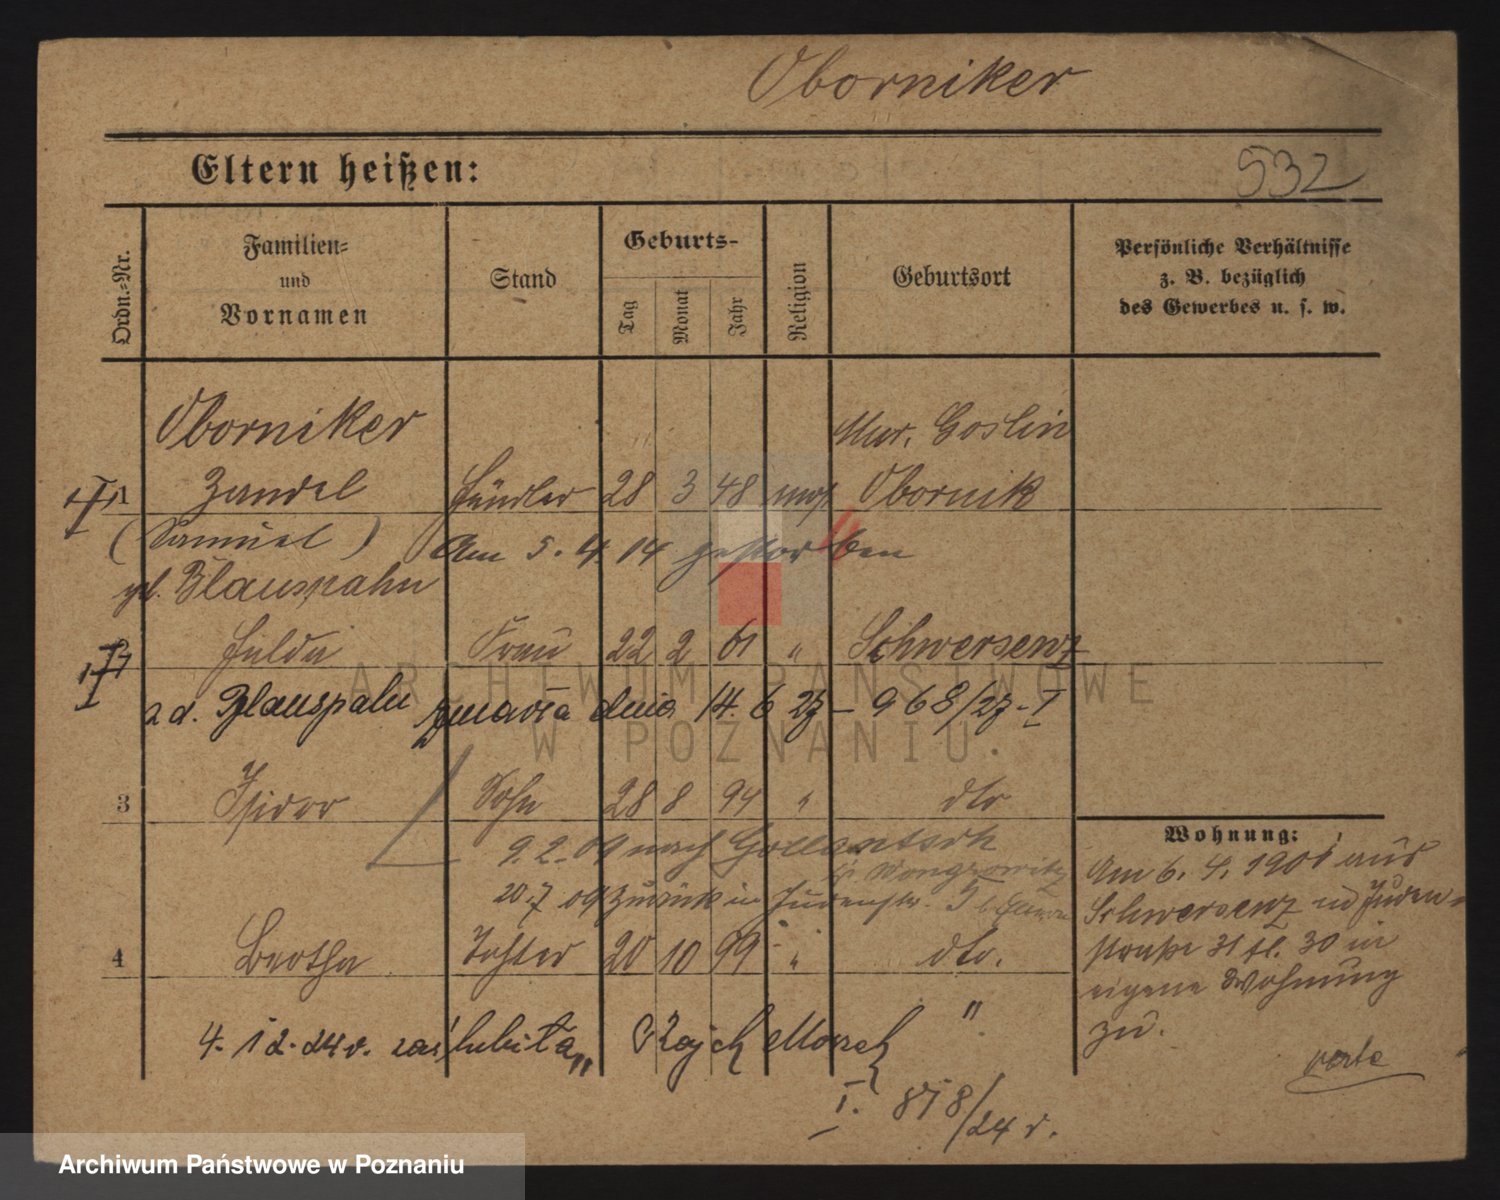 Oborniker
Eltern heißen:
532
Ordn.-Nr.
Familien-
und
Vornamen
Stand
Geburts-
Tag
Monat
Jahr
Religion
Geburtsort
Persönliche Verhältnisse
z. B. bezüglich
des Gewerbes u. s. w.
Oborniker Mur. Goslin
1 Zandel Händler 28 3 48 mos. Obornik
(Samuel) Am 5. 4. 14 gestorben
geb. Blauspahn
Hulda Frau 22 2 61 " Schwersenz
a d. Blauspahn zmarła dnia 14. 6 23 – 968/23 - I
3 Isidor Sohn 28 8 94 " dto
9. 2. 09 nach Gollantsch
Kr. Wongrowitz
20. 7 09 zurück in Judenstr. 5 b.
4 Bertha Tochter 20 10 99 " dto.
"
4. 12. 24 r. zaślubiła
I. 818/24 r.
Wohnung:
Am 6. 4. 1901 aus
Schwersenz nd Juden-
straße 31 fl. 30 in
eigene Wohnung
zu.
verte
ARCHIWUM PAŃSTWOWE
W POZNANIU.
Archiwum Państwowe w Poznaniu